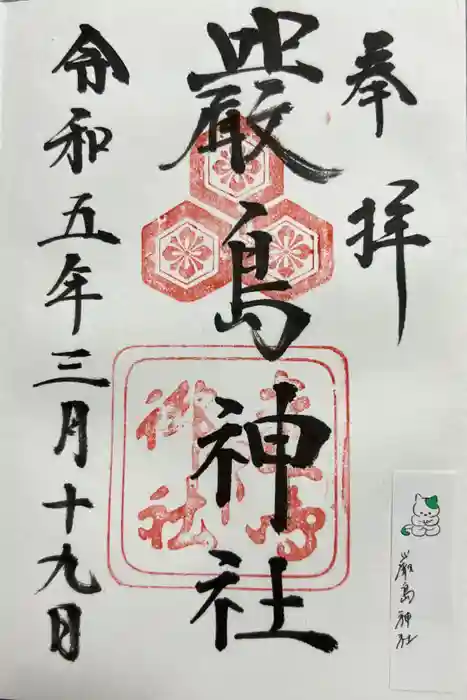 奉拝
嚴島神社
令和五年三月十九日
嚴島神社
嚴島神社